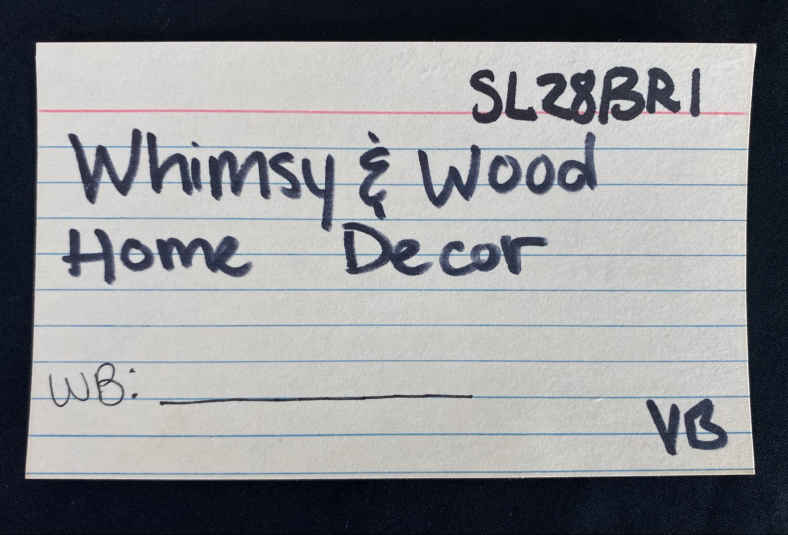 SL28BR1
Whimsy & Wood
Home Decor
WB: ___________
VB